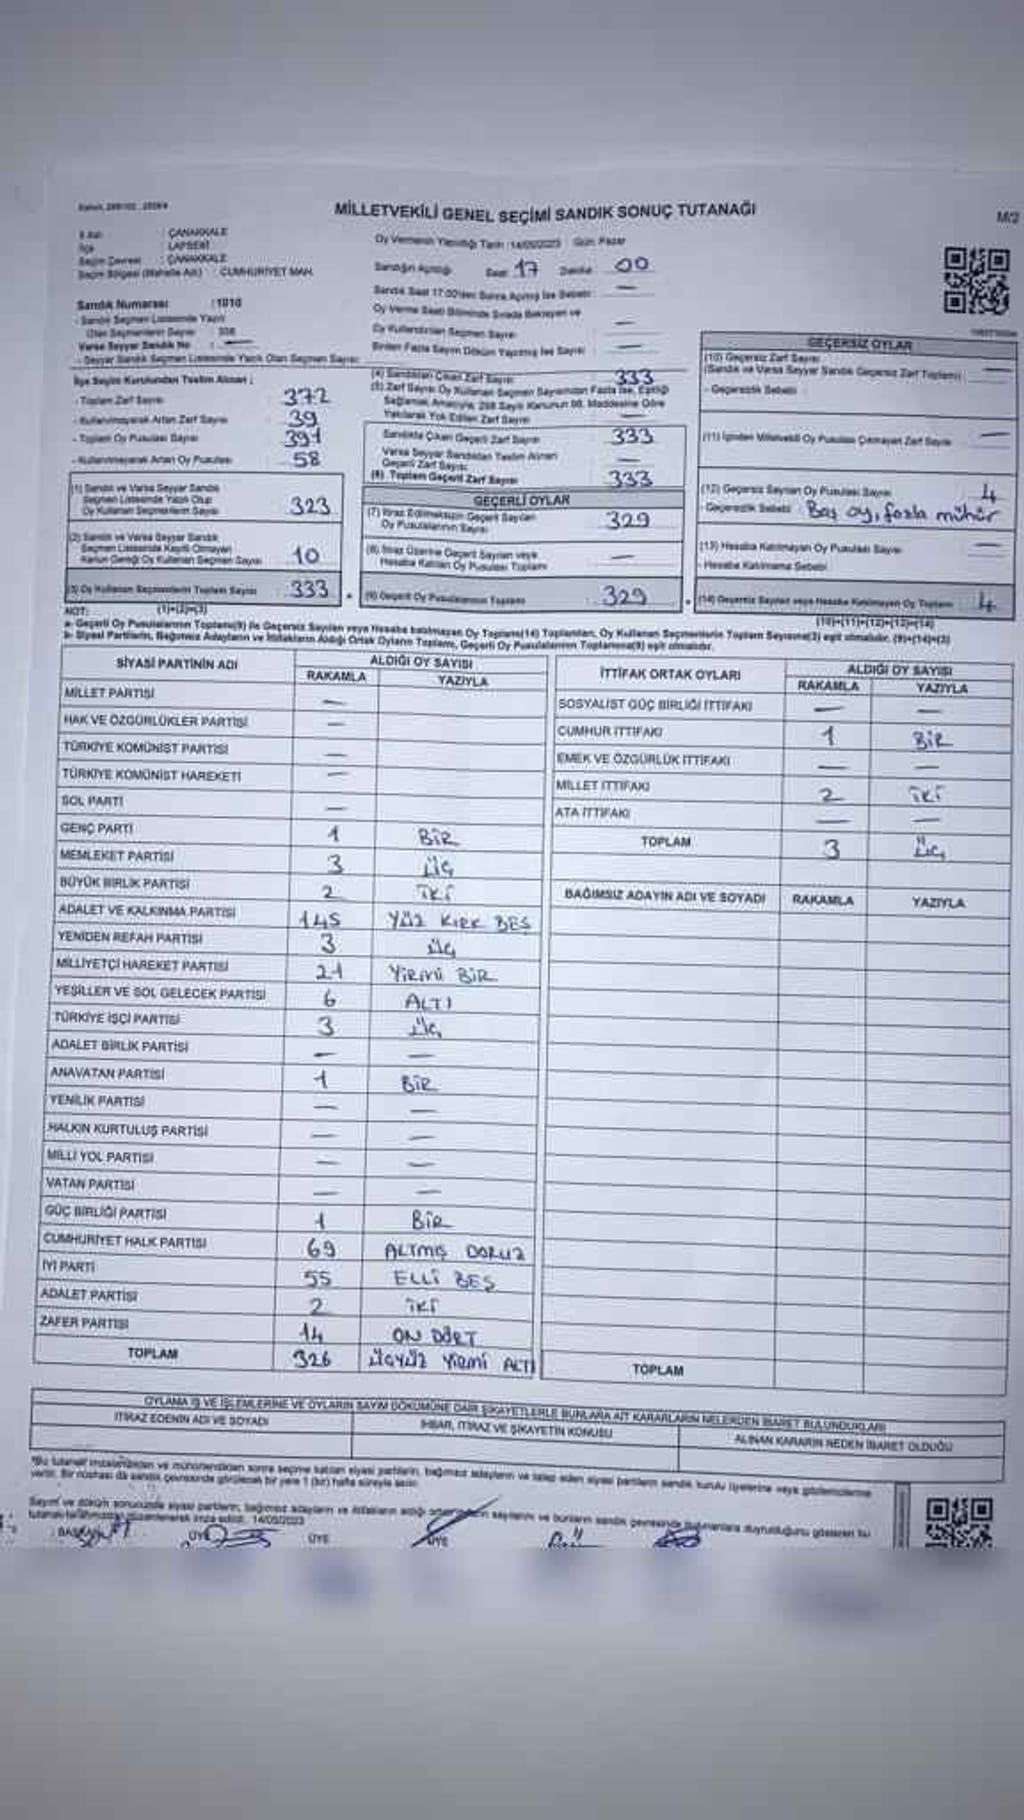 MİLLETVEKİLİ GENEL SEÇİMİ SANDIK SONUÇ TUTANAĞI
M/2
İl Adı : ÇANAKKALE
İlçe : LAPSEKİ
Seçim Çevresi : ÇANAKKALE
Seçim Bölgesi (Mahalle Adı) : CUMHURİYET MAH.
Oy Vermenin Yapıldığı Tarih : 14/05/2023 Gün: Pazar
Sandığın Açıldığı Saat 17 Dakika 00
Sandık Saat 17:00'den Sonra Açılmış İse Sebebi : —
Sandık Numarası : 1010
- Sandık Seçmen Listesinde Yazılı
Olan Seçmenlerin Sayısı
Varsa Seyyar Sandık No : —
- Seyyar Sandık Seçmen Listesinde Yazılı Olan Seçmen Sayısı
Oy Verme Saati Bitiminde Sırada Bekleyen ve
Oy Kullandırılan Seçmen Sayısı : —
Birden Fazla Sayım Döküm Yapılmış İse Sayısı : —
İlçe Seçim Kurulundan Teslim Alınan ;
- Toplam Zarf Sayısı : 372
- Kullanılmayarak Artan Zarf Sayısı : 39
- Toplam Oy Pusulası Sayısı : 391
- Kullanılmayarak Artan Oy Pusulası : 58
(1) Sandık ve Varsa Seyyar Sandık
Seçmen Listesinde Yazılı Olup
Oy Kullanan Seçmenlerin Sayısı : 323
(2) Sandık ve Varsa Seyyar Sandık
Seçmen Listesinde Kayıtlı Olmayan
Kanun Gereği Oy Kullanan Seçmen Sayısı 10
(3) Oy Kullanan Seçmenlerin Toplam Sayısı : 333
(1)+(2)=(3)
(4) Sandıktan Çıkan Zarf Sayısı : 333
(5) Zarf Sayısı Oy Kullanan Seçmen Sayısından Fazla İse, Eşitliği
Sağlamak Amacıyla, 298 Sayılı Kanunun 98. Maddesine Göre
Yakılarak Yok Edilen Zarf Sayısı : —
Sandıkta Çıkan Geçerli Zarf Sayısı : 333
Varsa Seyyar Sandıktan Teslim Alınan
Geçerli Zarf Sayısı : —
(6) Toplam Geçerli Zarf Sayısı : 333
GEÇERLİ OYLAR
(7) İtiraz Edilmeksizin Geçerli Sayılan
Oy Pusulalarının Sayısı : 329
(8) İtiraz Üzerine Geçerli Sayılan veya
Hesaba Katılan Oy Pusulası Toplamı : —
(9) Geçerli Oy Pusulalarının Toplamı : 329
GEÇERSİZ OYLAR
(10) Geçersiz Zarf Sayısı
(Sandık ve Varsa Seyyar Sandık Geçersiz Zarf Toplamı) : —
- Geçersizlik Sebebi :
(11) İçinden Milletvekili Oy Pusulası Çıkmayan Zarf Sayısı : —
(12) Geçersiz Sayılan Oy Pusulası Sayısı : 4
- Geçersizlik Sebebi : Boş oy, fazla mühür
(13) Hesaba Katılmayan Oy Pusulası Sayısı : —
- Hesaba Katılmama Sebebi :
(14) Geçersiz Sayılan veya Hesaba Katılmayan Oy Toplamı : 4
(10)+(11)+(12)+(13)=(14)
NOT:
a- Geçerli Oy Pusulalarının Toplamı(9) ile Geçersiz Sayılan veya Hesaba katılmayan Oy Toplamı(14) Toplamları, Oy Kullanan Seçmenlerin Toplam Sayısına(3) eşit olmalıdır. (9)+(14)=(3)
b- Siyasi Partilerin, Bağımsız Adayların ve İttifakların Aldığı Ortak Oyların Toplamı, Geçerli Oy Pusulalarının Toplamına(9) eşit olmalıdır.
SİYASİ PARTİNİN ADI ALDIĞI OY SAYISI
RAKAMLA YAZIYLA
MİLLET PARTİSİ —
HAK VE ÖZGÜRLÜKLER PARTİSİ —
TÜRKİYE KOMÜNİST PARTİSİ —
TÜRKİYE KOMÜNİST HAREKETİ —
SOL PARTİ —
GENÇ PARTİ 1 BİR
MEMLEKET PARTİSİ 3 ÜÇ
BÜYÜK BİRLİK PARTİSİ 2 İKİ
ADALET VE KALKINMA PARTİSİ 145 YÜZ KIRK BEŞ
YENİDEN REFAH PARTİSİ 3 ÜÇ
MİLLİYETÇİ HAREKET PARTİSİ 21 YİRMİ BİR
YEŞİLLER VE SOL GELECEK PARTİSİ 6 ALTI
TÜRKİYE İŞÇİ PARTİSİ 3 ÜÇ
ADALET BİRLİK PARTİSİ — —
ANAVATAN PARTİSİ 1 BİR
YENİLİK PARTİSİ — —
HALKIN KURTULUŞ PARTİSİ — —
MİLLİ YOL PARTİSİ — —
VATAN PARTİSİ — —
GÜÇ BİRLİĞİ PARTİSİ 1 BİR
CUMHURİYET HALK PARTİSİ 69 ALTMIŞ DOKUZ
İYİ PARTİ 55 ELLİ BEŞ
ADALET PARTİSİ 2 İKİ
ZAFER PARTİSİ 14 ON DÖRT
TOPLAM 326 ÜÇYÜZ YİRMİ ALTI
İTTİFAK ORTAK OYLARI ALDIĞI OY SAYISI
RAKAMLA YAZIYLA
SOSYALİST GÜÇ BİRLİĞİ İTTİFAKI — —
CUMHUR İTTİFAKI 1 BİR
EMEK VE ÖZGÜRLÜK İTTİFAKI — —
MİLLET İTTİFAKI 2 İKİ
ATA İTTİFAKI — —
TOPLAM 3 ÜÇ
BAĞIMSIZ ADAYIN ADI VE SOYADI RAKAMLA YAZIYLA
TOPLAM
OYLAMA İŞ VE İŞLEMLERİNE VE OYLARIN SAYIM DÖKÜMÜNE DAİR ŞİKAYETLERLE BUNLARA AİT KARARLARIN NELERDEN İBARET BULUNDUKLARI
İTİRAZ EDENİN ADI VE SOYADI
İHBAR, İTİRAZ VE ŞİKAYETİN KONUSU
ALINAN KARARIN NEDEN İBARET OLDUĞU
BAŞKAN ÜYE ÜYE ÜYE